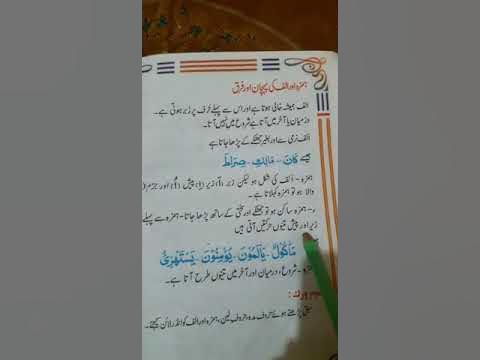 ہمزہ اور الف کی پہچان اور فرق
الف ہمیشہ خالی ہوتا ہے اور اس سے پہلے حرف پر زبر ہوتی ہے۔
درمیان یا آخر میں آتا ہے شروع میں نہیں آتا۔
الف نرمی سے اور بغیر جھٹکے کے پڑھا جاتا ہے
جیسے كَانَ - مَالِكِ - صِرَاطَ
ہمزہ - الف کی شکل ہو لیکن زبر أَ، زیر (إِ) پیش (أُ) اور جزم
والا ہو تو ہمزہ کہلاتا ہے۔
ہمزہ ساکن ہو تو جھٹکے اور سختی کے ساتھ پڑھا جاتا - ہمزہ سے پہلے
زبر اور پیش تینوں حرکتیں آتی ہیں
مَأْكُوْلٍ - يَأْلَمُوْنَ - يُؤْمِنُوْنَ - يَسْتَهْزِئُ
ہمزہ - شروع، درمیان اور آخر میں تینوں طرح آتا ہے۔
ورک:
سبق پڑھتے ہوئے حروف مدہ، حروف لین، ہمزہ اور الف کو انڈر لائن کیجئے۔